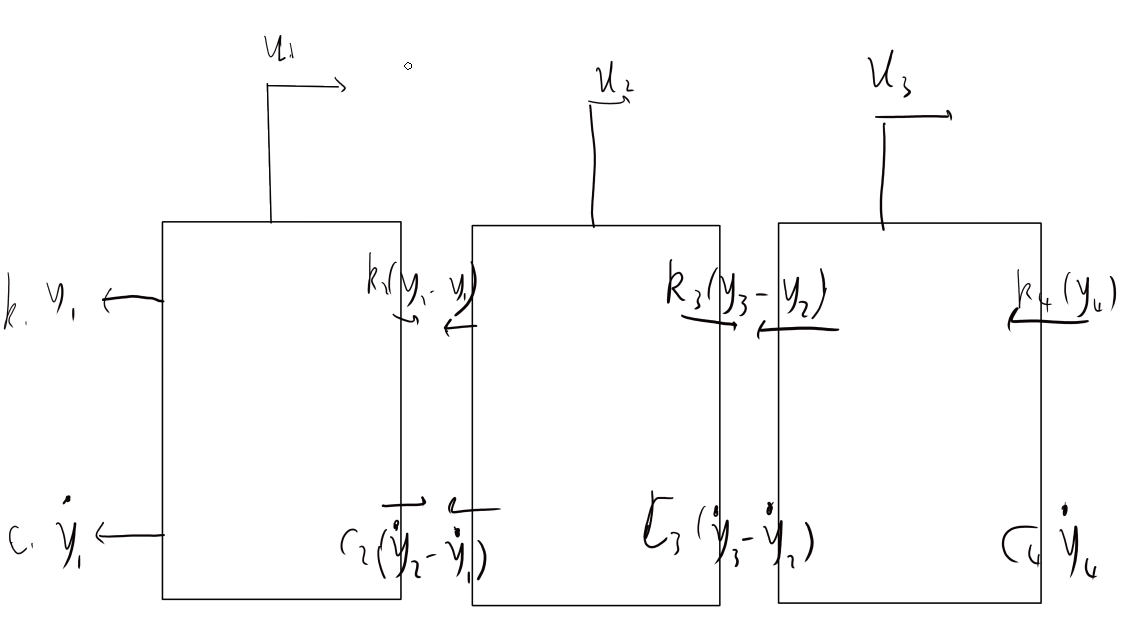 u₁
u₂
u₃
k₁ y₁
k₂(y₂ - y₁)
k₃(y₃ - y₂)
k₄(y₄)
c₁ ẏ₁
c₂(ẏ₂ - ẏ₁)
c₃(ẏ₃ - ẏ₂)
c₄ ẏ₄